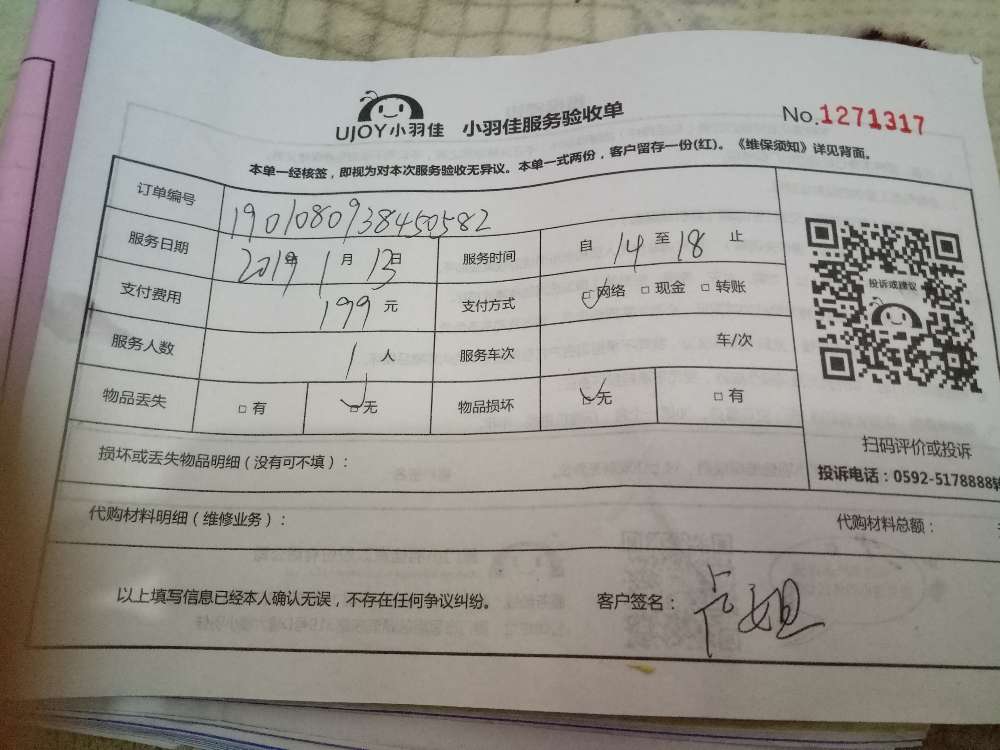 UJOY小羽佳 小羽佳服务验收单 No.1271317
本单一经核签，即视为对本次服务验收无异议。本单一式两份，客户留存一份(红)。《维保须知》详见背面。
订单编号 1901080938450582
服务日期 2019年1月13日 服务时间 自14至18止
支付费用 199元 支付方式 □网络 □现金 □转账
服务人数 1人 服务车次 车/次
物品丢失 □有 □无 物品损坏 □无 □有
投诉或建议
扫码评价或投诉
损坏或丢失物品明细（没有可不填）：
投诉电话：0592-5178888转
代购材料明细（维修业务）： 代购材料总额：
以上填写信息已经本人确认无误，不存在任何争议纠纷。 客户签名：卢姐